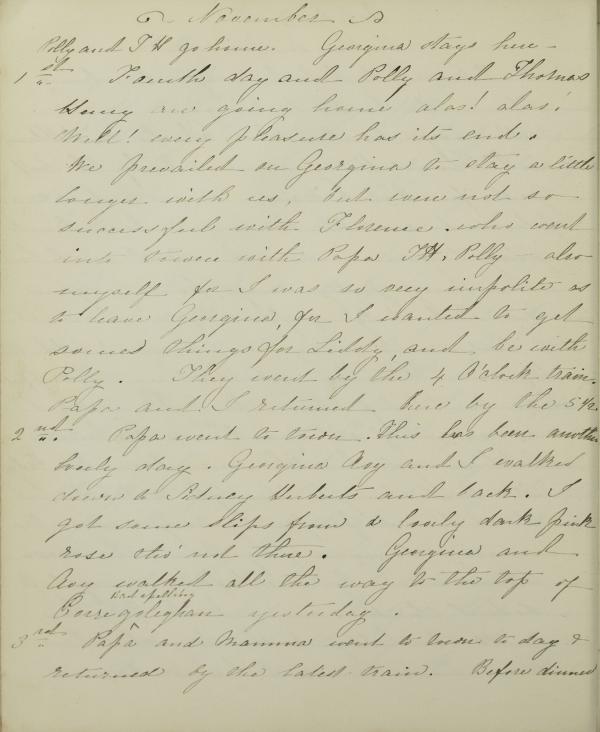 November
Polly and T H go home. Georgina stays here -
1st Fourth day and Polly and Thomas
Henry are going home alas! alas!
Well! every pleasure has its end.
We prevailed on Georgina to stay a little
longer with us, but were not so
successful with Florence. who went
into town with Papa TH, Polly - also
myself for I was so very impolite as
to leave Georgina, for I wanted to get
some things for Liddy, and be with
Polly. They went by the 4 O'clock train.
Papa and I returned here by the 5 1/2.
2nd. Papa went to town. This has been another
lovely day. Georgina Avy and I walked
down to Sidney Huberts and back. I
got some slips from a lovely dark pink
rose not there. Georgina and
Avy walked all the way to the top of
bad spelling
Corregoleghan yesterday.
3rd Papa and Mamma went to town to day &
returned by the latest train. Before dinner